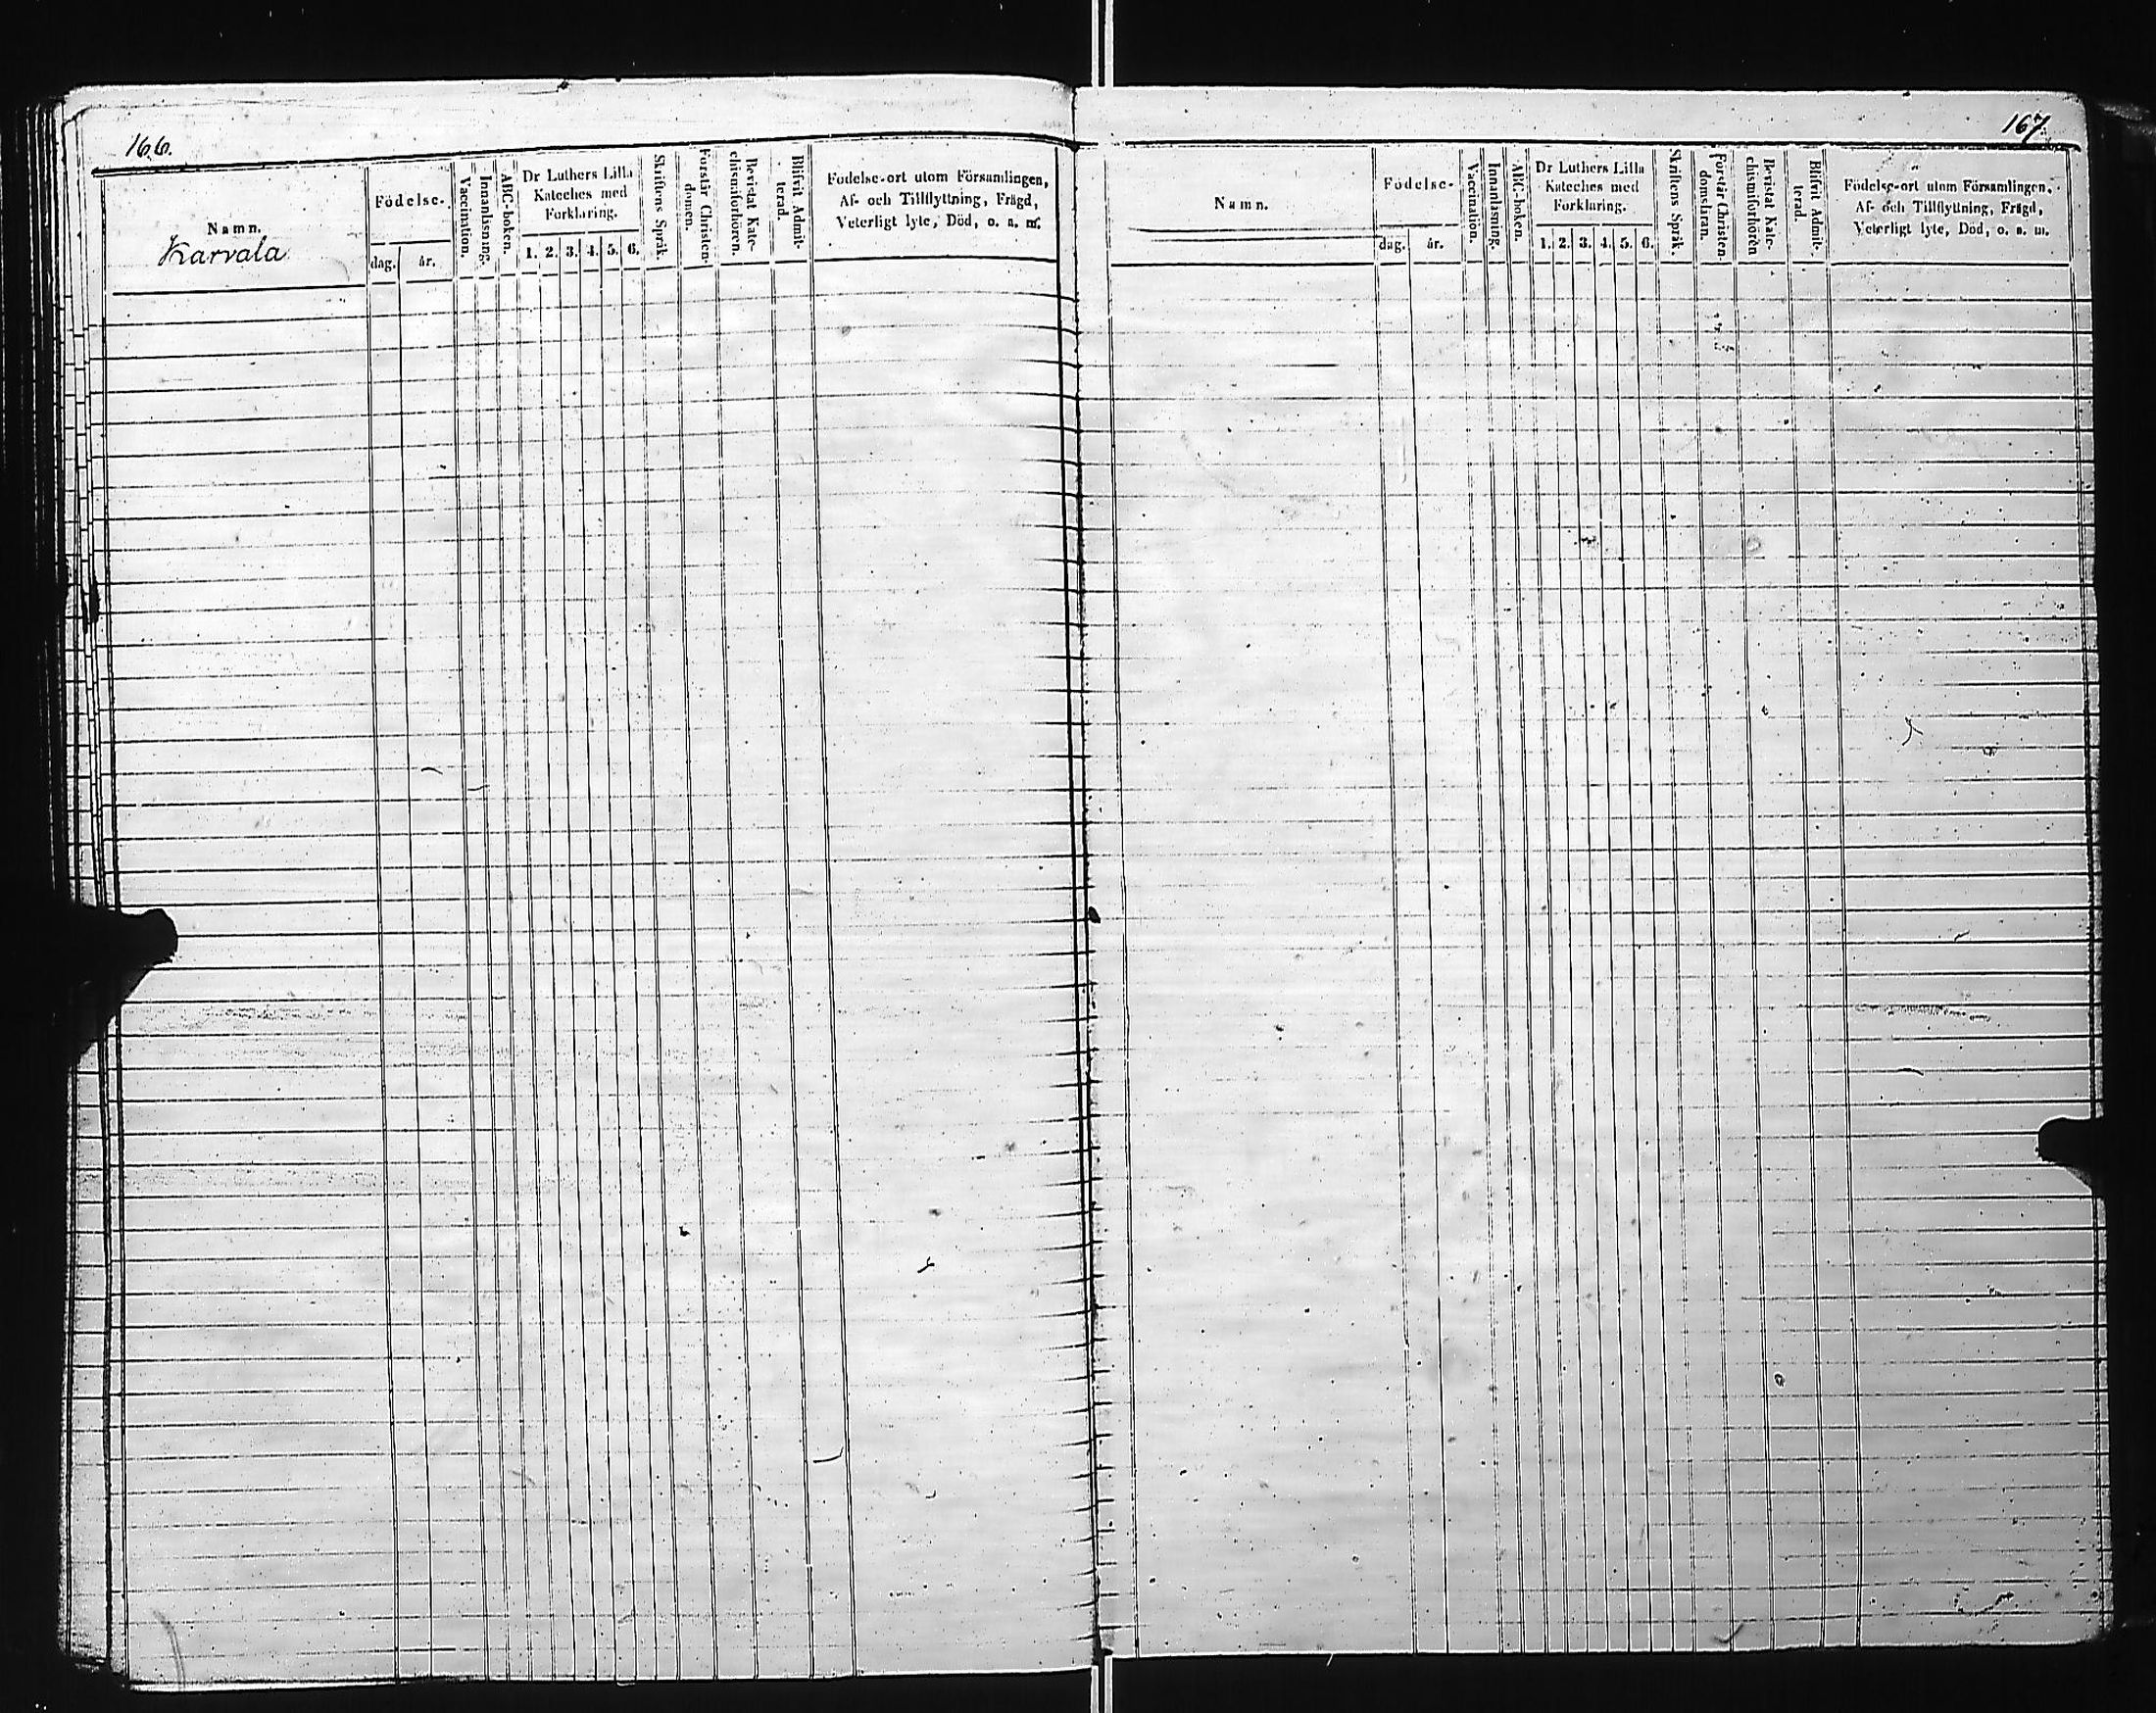 166.
Namn.
Karvala
Födelse-
dag.
år.
Vaccination.
Innanläsning.
ABC-boken.
Dr Luthers Lilla
Kateches med
Forklaring.
1. 2. 3. 4. 5. 6.
Skriftens Språk.
Förstår Christen-
domen.
Bevistat Kate-
chismiförhören.
Blifvit Admit-
terad.
Födelse-ort utom Församlingen,
Af- och Tillflyttning, Frägd,
Veterligt lyte, Död, o. s. m.
167.
Namn.
Födelse-
dag.
år.
Vaccination.
Innanläsning.
ABC-boken.
Dr Luthers Lilla
Kateches med
Forklaring.
1. 2. 3. 4. 5. 6.
Skriftens Språk.
Förstår Christen-
domsläran.
Bevistat Kate-
chismiförhören
Blifvit Admit-
terad.
Födelse-ort utom Församlingen,
Af- och Tillflyttning, Frägd,
Veterligt lyte, Död, o. s. m.